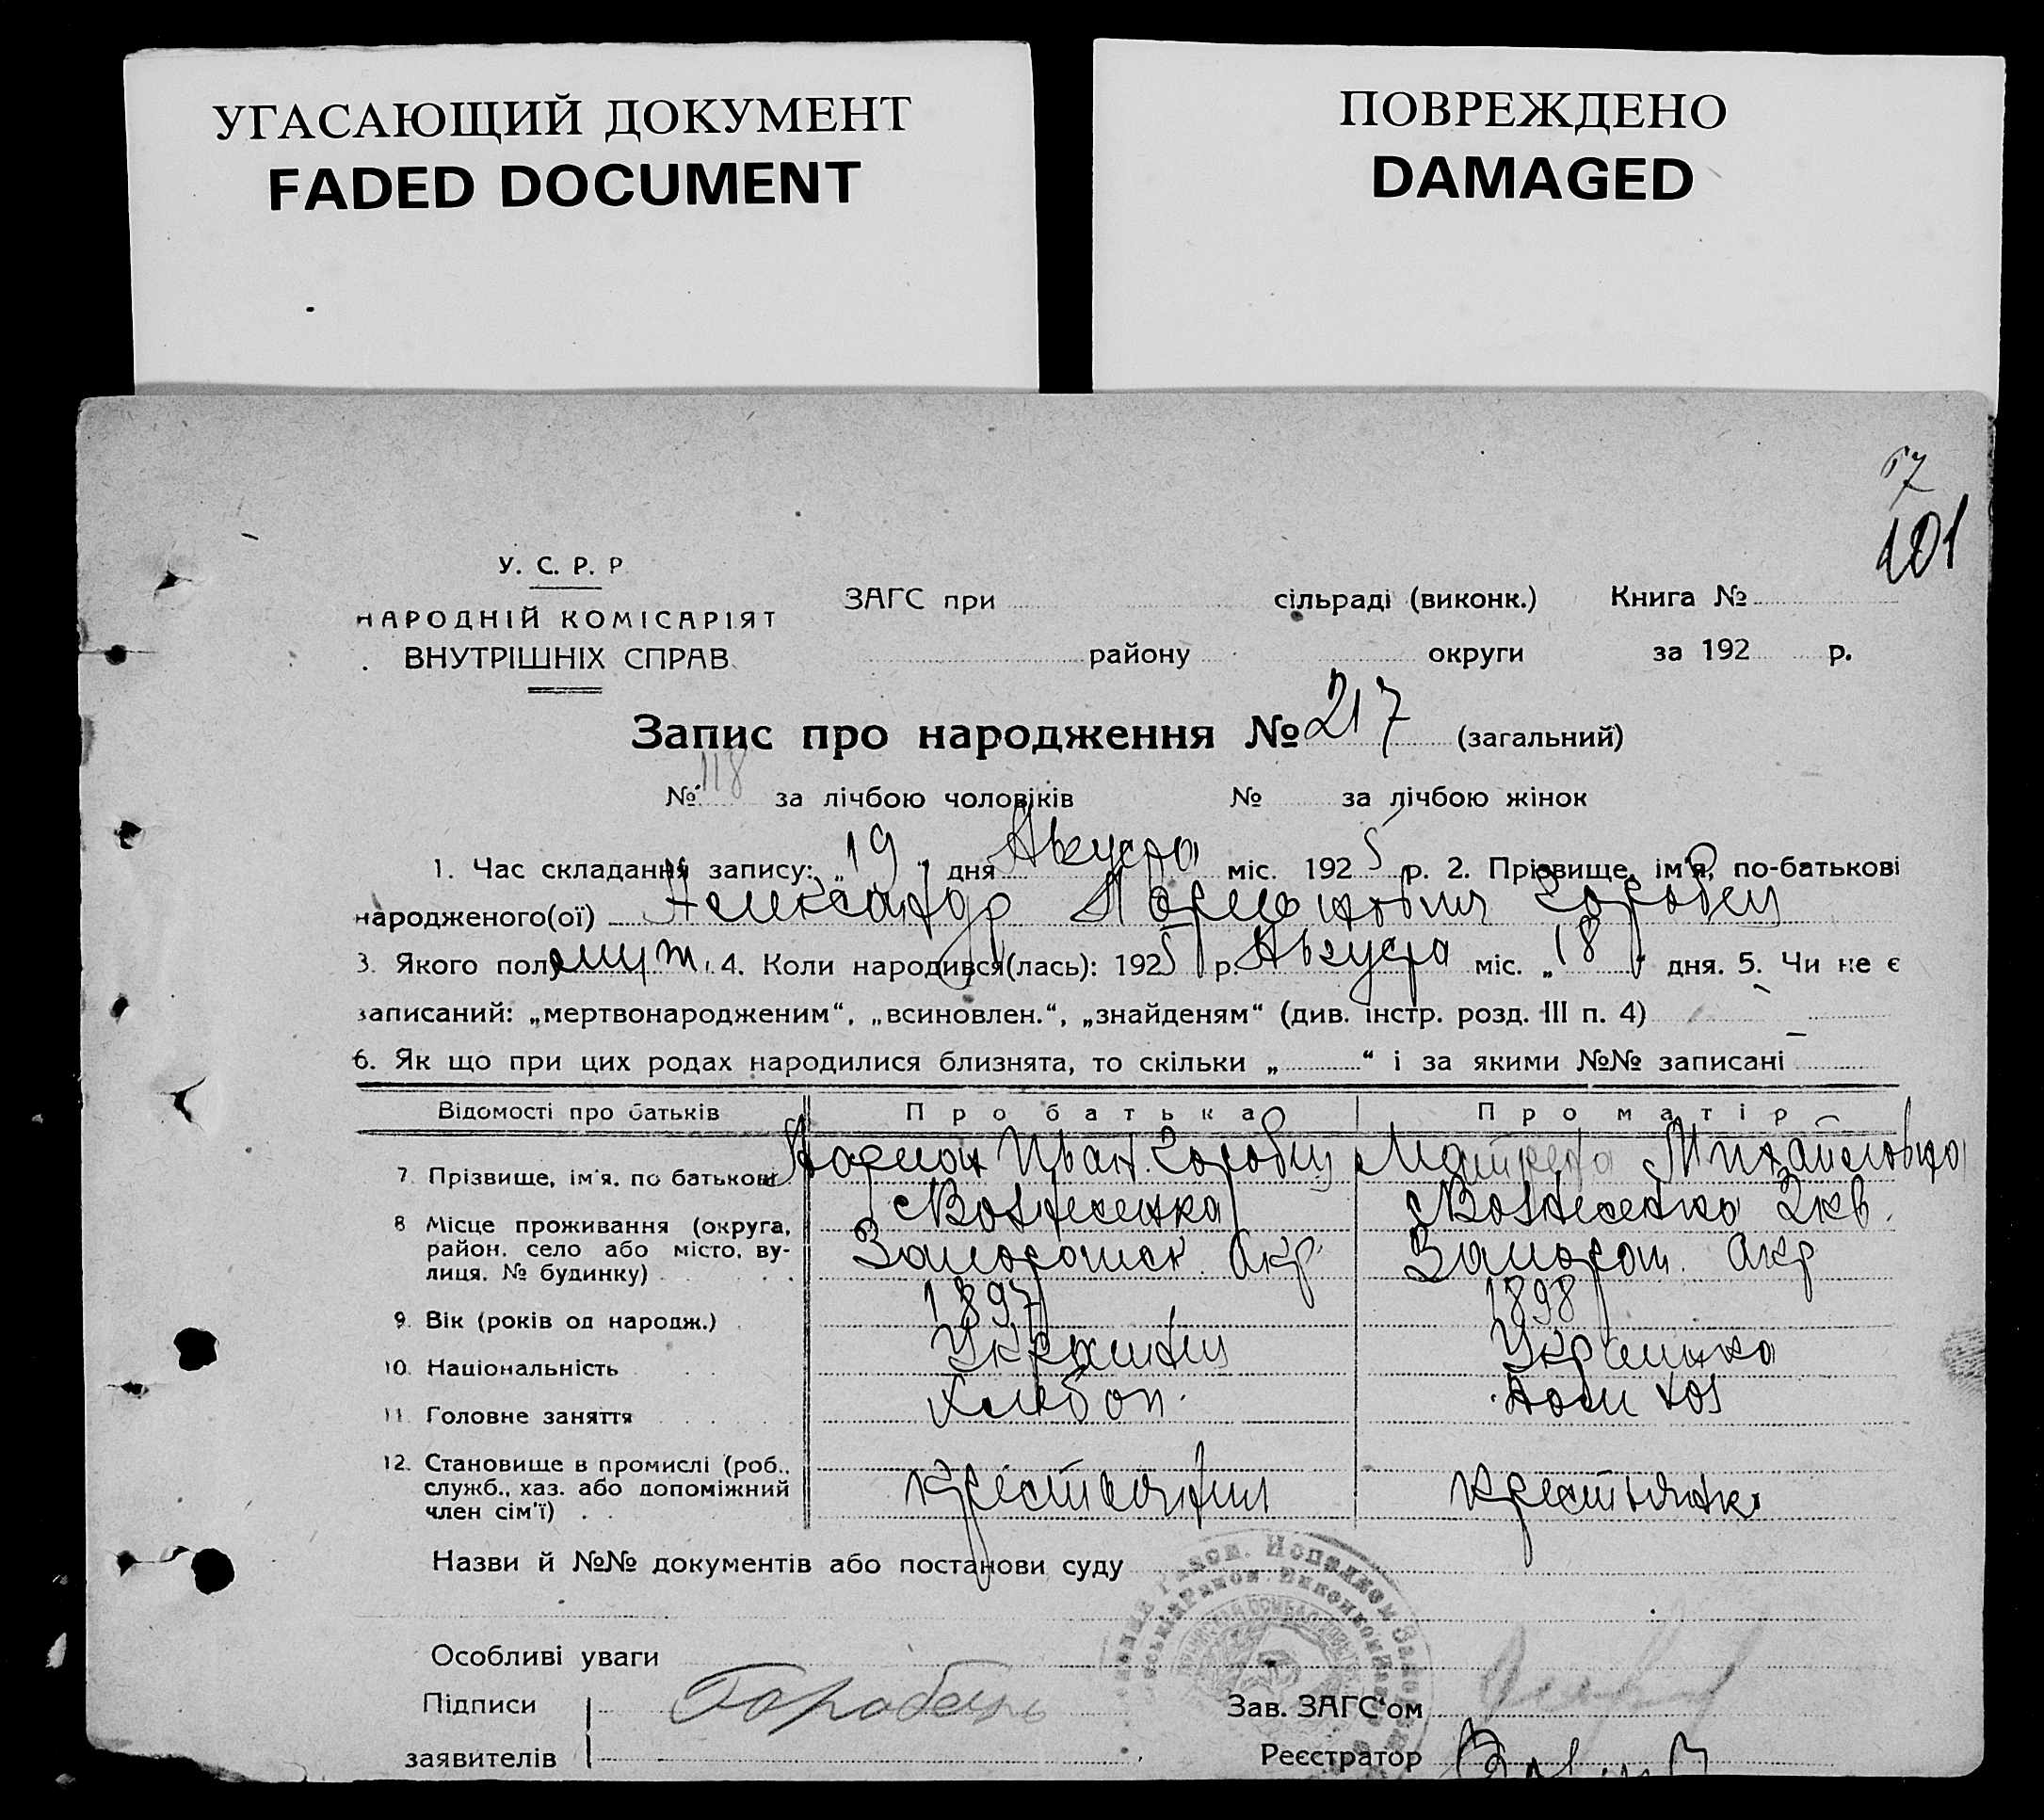 УГАСАЮЩИЙ ДОКУМЕНТ
FADED DOCUMENT
ПОВРЕЖДЕНО
DAMAGED
57
101
У. С. Р. Р
НАРОДНІЙ КОМІСАРІЯТ
ВНУТРІШНІХ СПРАВ
ЗАГС при сільраді (виконк.) Книга №
району округи за 192 р.
Запис про народження № 217 (загальний)
№ 118 за лічбою чоловіків № за лічбою жінок
1. Час складання запису: „19„ дня Августа міс. 1925 р. 2. Прізвище, ім'я, по-батькові
народженого(ої) Александр Горобец
3. Якого полу муж. 4. Коли народився(лась): 1925 р. Августа міс. „18" дня. 5. Чи не є
записаний: „мертвонародженим", „всиновлен.", „знайденям" (див. інстр. розд. III п. 4) —
6. Як що при цих родах народилися близнята, то скільки „ " і за якими №№ записані
Відомості про батьків Про батька Про матір
7. Прізвище, ім'я, по батькові Иван. Горобец Матрена Михайловна
8 Місце проживання (округа, район, село або місто, вулиця, № будинку) Вознесенка Запорожск. Окр. Вознесенка 2кв. Запорож. Окр
9. Вік (років од народж.) 1897 1898
10. Національність Украинец Украинка
11. Головне заняття Хлебоп. Дом хоз
12. Становище в промислі (роб., служб., хаз. або допоміжний член сім'ї) крестьянин крестьянка
Назви й №№ документів або постанови суду
Особливі уваги
Підписи Горобець
заявителів
Зав. ЗАГС'ом
Реєстратор